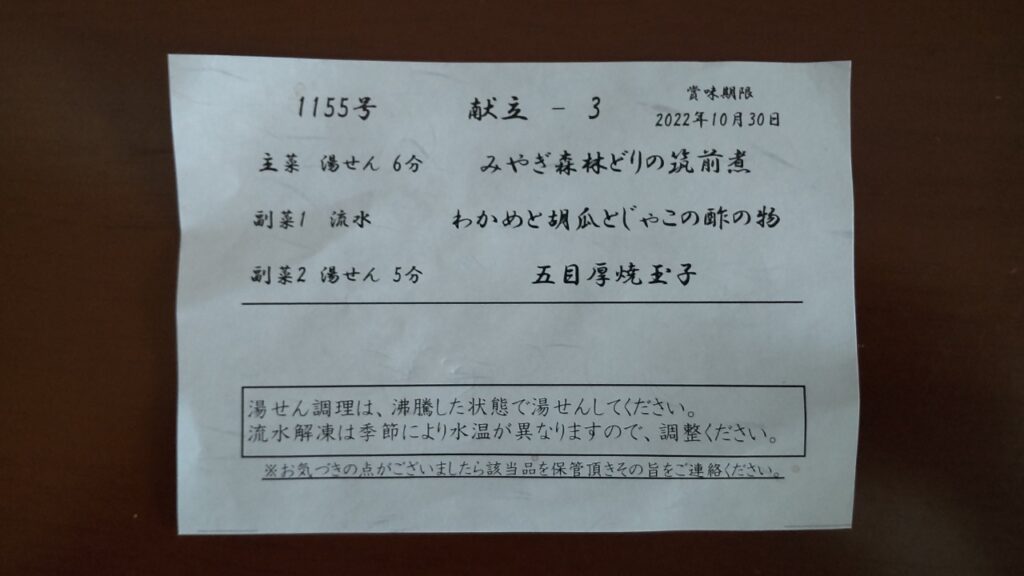 1155号 献立 - 3 賞味期限
2022年10月30日
主菜 湯せん 6分 みやぎ森林どりの筑前煮
副菜1 流水 わかめと胡瓜とじゃこの酢の物
副菜2 湯せん 5分 五目厚焼玉子
湯せん調理は、沸騰した状態で湯せんしてください。
流水解凍は季節により水温が異なりますので、調整ください。
※お気づきの点がございましたら該当品を保管頂きその旨をご連絡ください。